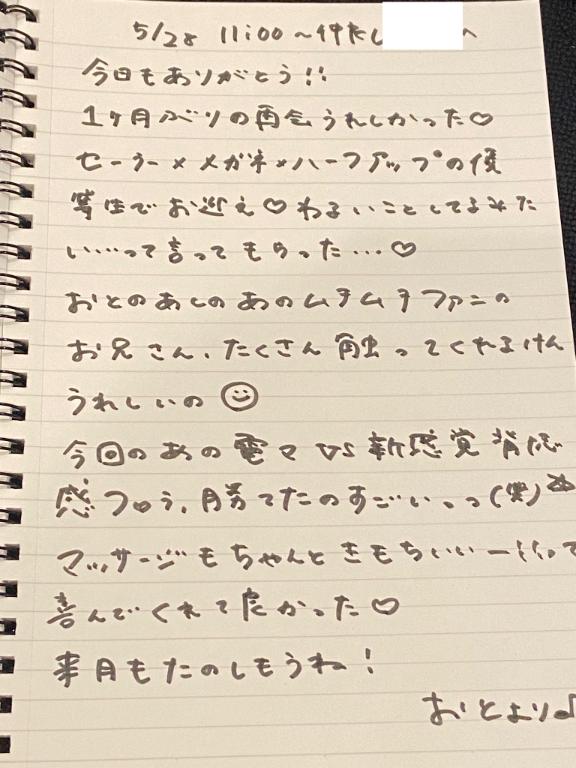 5/28 11:00〜
今日もありがとう!!
1ヶ月ぶりの再会うれしかった♡
セーラー×メガネ×ハーフアップの優
等生でお迎え♡わるいことしてみた
い…って言ってもらった…♡
おとのあしのあのムチムチファンの
お兄さん、たくさん触ってくれるけん
うれしいの☺
今回のあの電マVS新感覚背徳
感フロう、勝てたのすごいっっ(笑)
マッサージもちゃんときもちいいー!!って
喜んでくれて良かった♡
来月もたのしもうね!
おとより♪